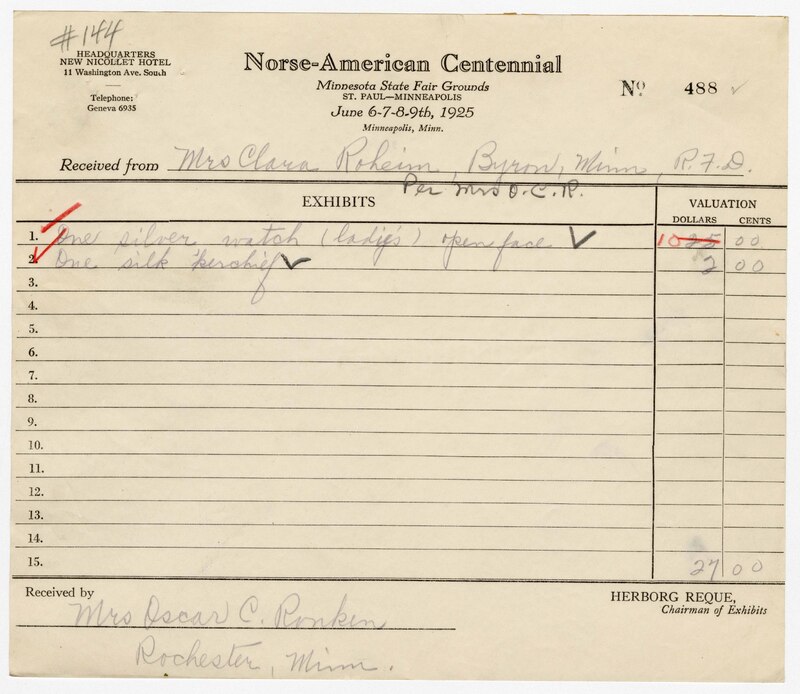 #144
HEADQUARTERS
NEW NICOLLET HOTEL
11 Washington Ave. South
Telephone:
Geneva 6935
Norse-American Centennial
Minnesota State Fair Grounds
ST. PAUL—MINNEAPOLIS
June 6-7-8-9th, 1925
Minneapolis, Minn.
Nº 488 ✓
Received from Mrs Clara Roheim, Byron, Minn, R.F.D.
Per Mrs O.C.R.
EXHIBITS
VALUATION
DOLLARS CENTS
1. One silver watch (ladys) open face ✓ 10 25 00
2. One silk 'kerchief ✓ 2 00
3.
4.
5.
6.
7.
8.
9.
10.
11.
12.
13.
14.
15. 27 00
Received by
Mrs Oscar C. Ronken
Rochester, Minn.
HERBORG REQUE,
Chairman of Exhibits